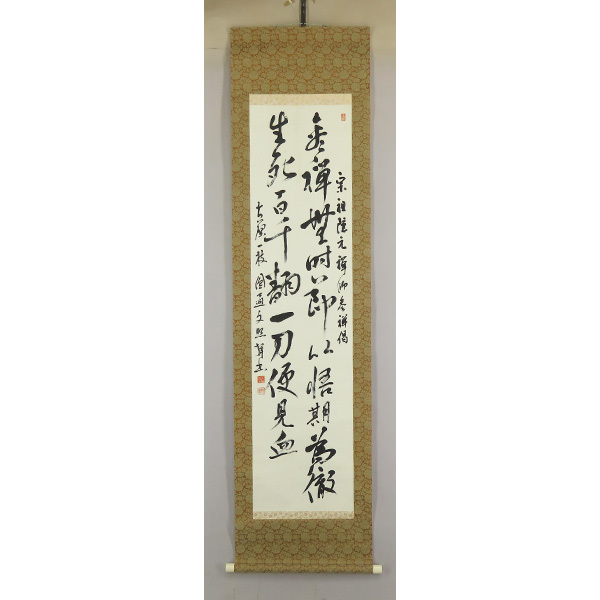 宗祖隠元禅師参禅偈
参禅無時節以悟期為徹
生死百千翻一刀便見血
黄檗一枝 圓通文照 謹書